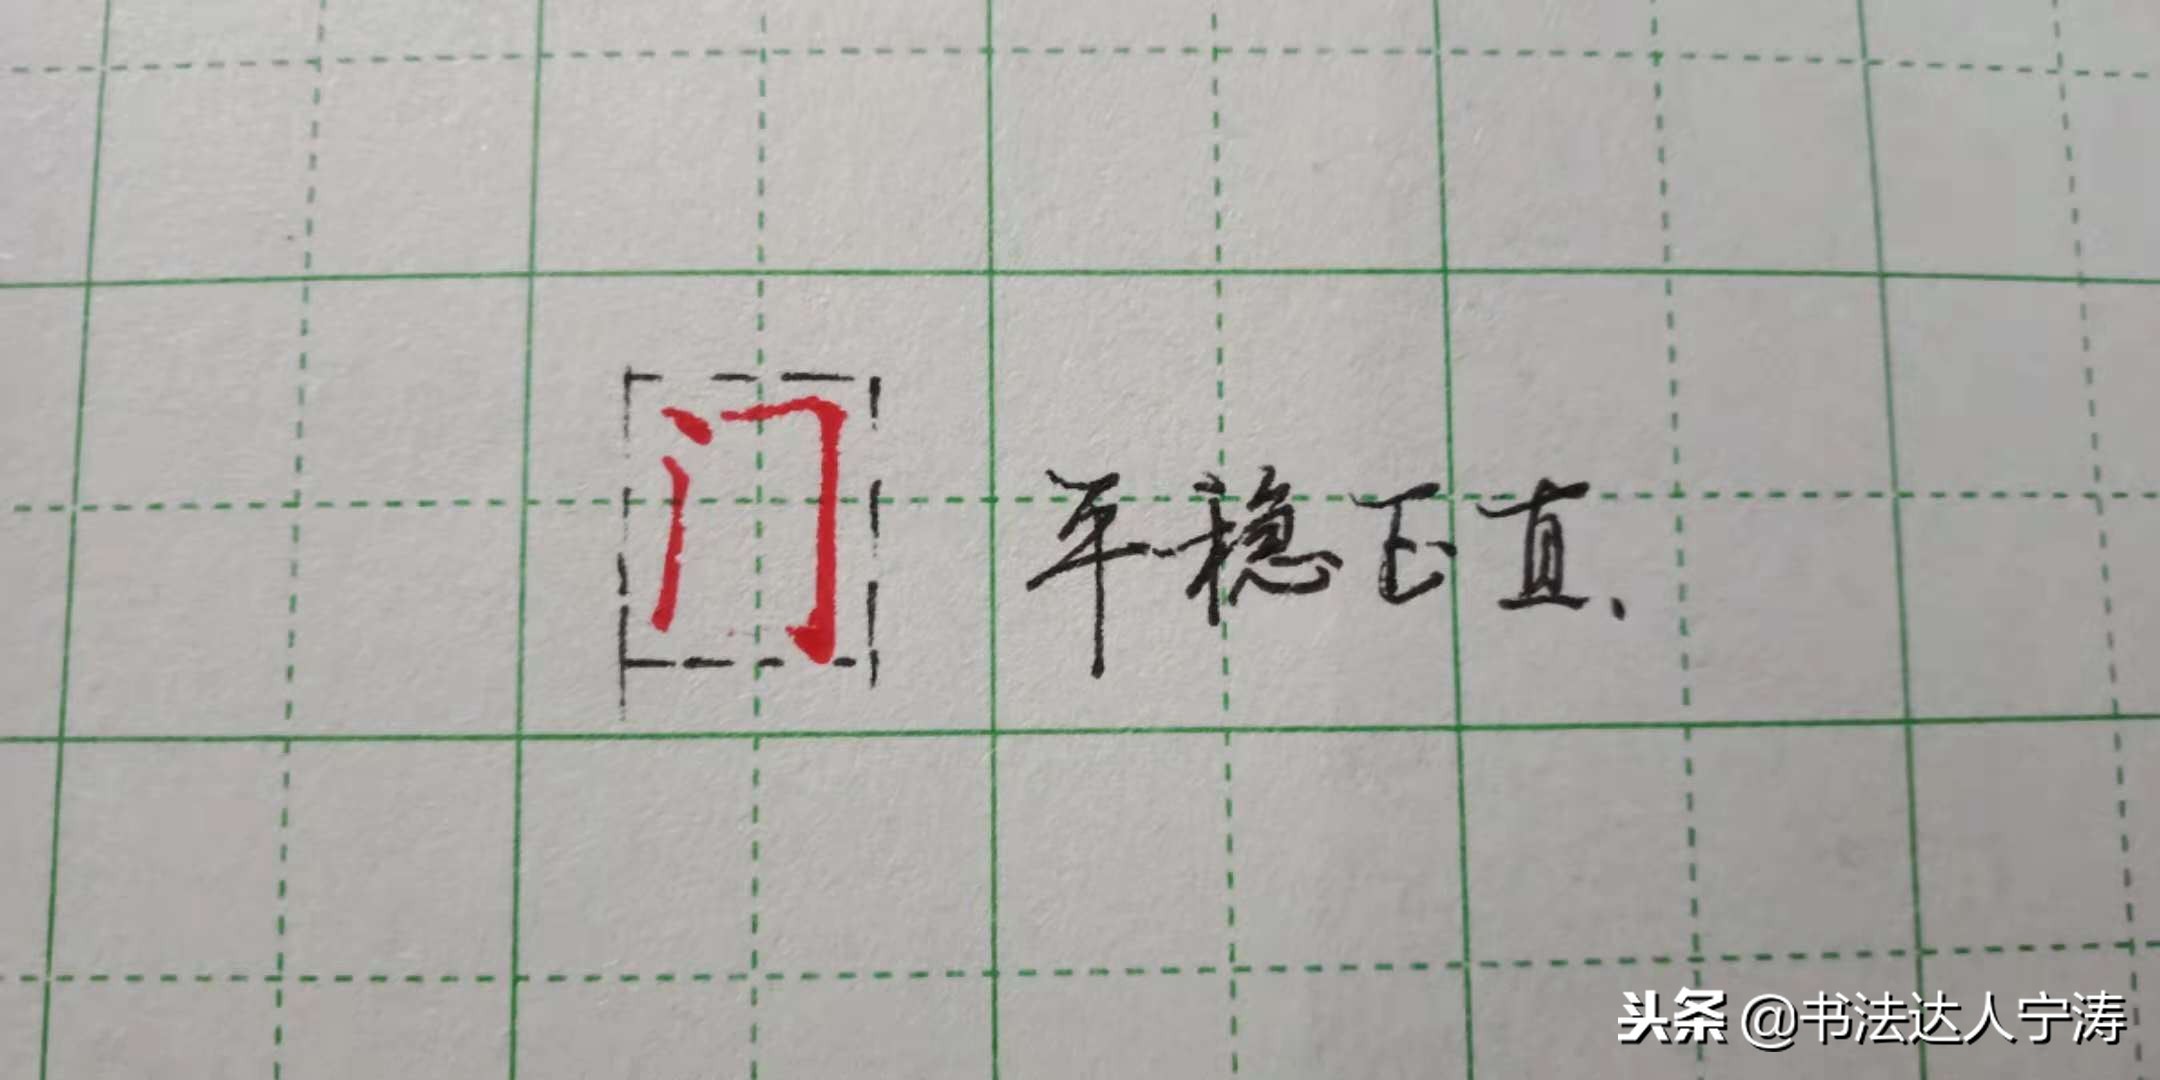 门 平稳正直.
头条 @书法达人宁涛